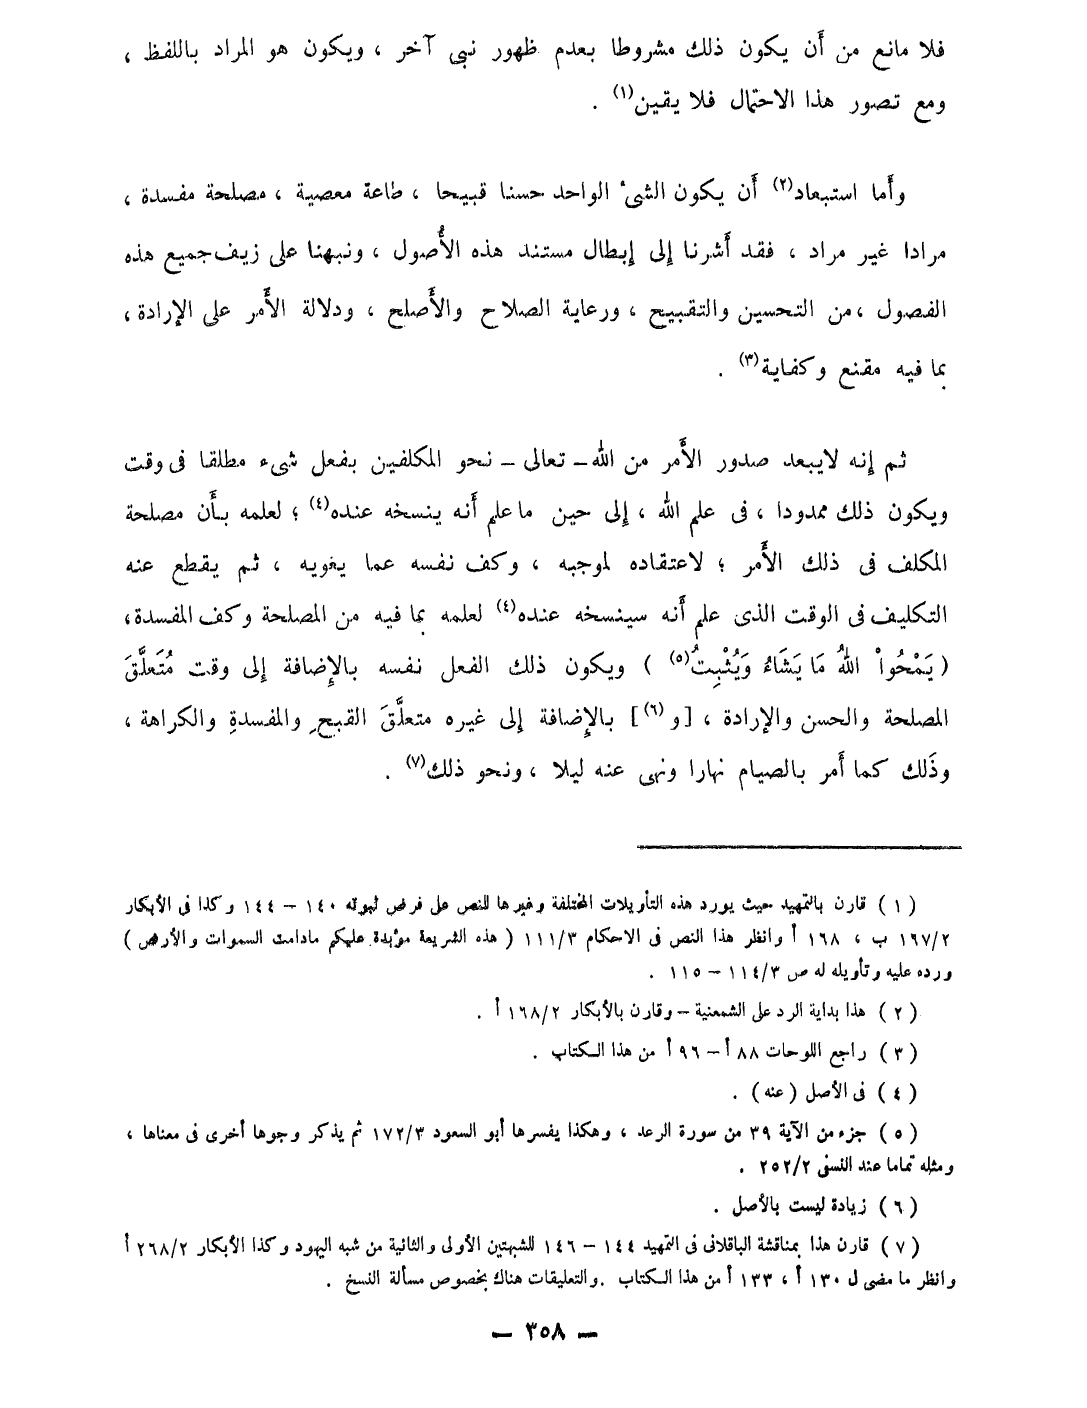 فلا مانع من أَن يكون ذلك مشروطا بعدم ظهور نبى آخر ، ويكون هو المراد باللفظ ،
ومع تصور هذا الاحتمال فلا يقين(١) .
وأَما استبعاد(٢) أَن يكون الشىٴ الواحد حسنا قبيحا ، طاعة معصية ، مصلحة مفسدة ،
مرادا غير مراد ، فقد أَشرنا إِلى إِبطال مستند هذه الأُصول ، ونبهنا على زيف جميع هذه
الفصول ، من التحسين والتقبيح ، ورعاية الصلاح والأَصلح ، ودلالة الأَمر على الإِرادة ،
بما فيه مقنع وكفاية(٣) .
ثم إِنه لايبعد صدور الأَمر من الله – تعالى – نحو المكلفين بفعل شىء مطلقا فى وقت
ويكون ذلك ممدودا ، فى علم الله ، إِلى حين ما علم أَنه ينسخه عنده(٤) ؛ لعلمه بأَن مصلحة
المكلف فى ذلك الأَمر ؛ لاعتقاده لموجبه ، وكف نفسه عما يغويه ، ثم يقطع عنه
التكليف فى الوقت الذى علم أَنه سينسخه عنده(٤) لعلمه بما فيه من المصلحة وكف المفسدة ،
( يَمْحُواْ اللهُ مَا يَشَاءُ وَيُثْبِتُ(٥) ) ويكون ذلك الفعل نفسه بالإِضافة إِلى وقت مُتَعلَّقَ
المصلحة والحسن والإرادة ، [ و (٦) ] بالإِضافة إِلى غيره متعلَّقَ القبحِ والمفسدةِ والكراهة ،
وذَلك كما أَمر بالصيام نهارا ونهى عنه ليلا ، ونحو ذلك(٧) .
( ١ ) قارن بالتمهيد حيث يورد هذه التأويلات المختلفة وغيرها للنص على فرض ثبوته ١٤٠ – ١٤٤ وكذا فى الأبكار
١٦٧/٢ ب ، ١٦٨ أ وانظر هذا النص فى الاحكام ١١١/٣ ( هذه الشريعة مؤبدة عليكم مادامت السموات والأرض )
ورده عليه وتأويله له ص ١١٤/٣ – ١١٥ .
( ٢ ) هذا بداية الرد على الشمعنية – وقارن بالأبكار ١٦٨/٢ أ .
( ٣ ) راجع اللوحات ٨٨ أ – ٩٦ أ من هذا الكتاب .
( ٤ ) فى الأصل ( عنه ) .
( ٥ ) جزء من الآية ٣٩ من سورة الرعد ، وهكذا يفسرها أبو السعود ١٧٢/٣ ثم يذكر وجوها أخرى فى معناها ،
ومثله تماما عند النسفى ٢٥٢/٢ .
( ٦ ) زيادة ليست بالأصل .
( ٧ ) قارن هذا بمناقشة الباقلانى فى التمهيد ١٤٤ – ١٤٦ للشبهتين الأولى والثانية من شبه اليهود وكذا الأبكار ٢٦٨/٢ أ
وانظر ما مضى ل ١٣٠ أ ، ١٣٣ أ من هذا الكتاب . والتعليقات هناك بخصوص مسألة النسخ .
– ٣٥٨ –